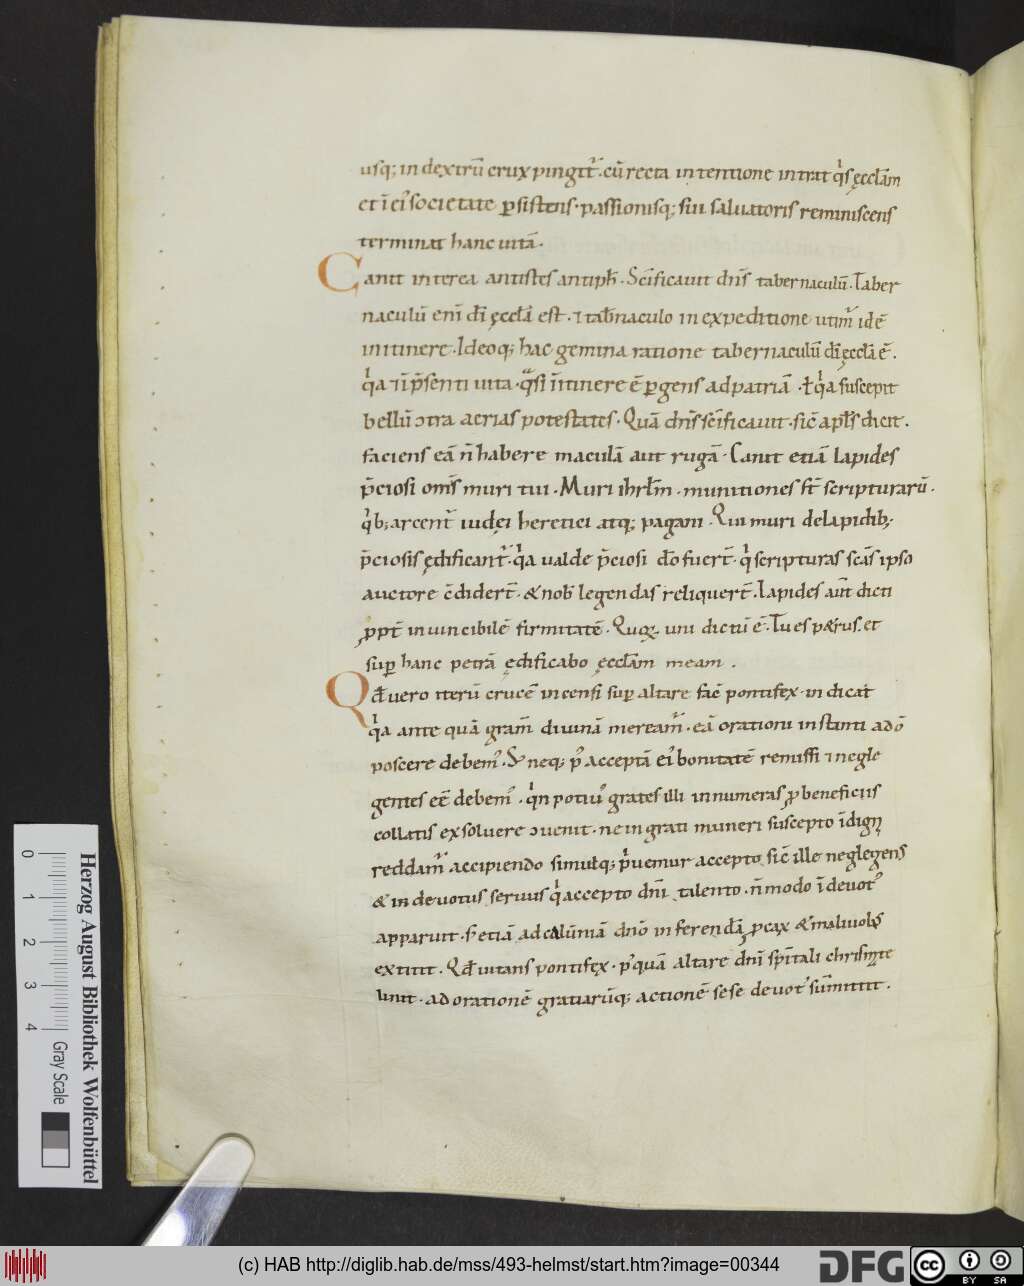 usq; in dextrū crux pingit᷑. cū recta intentione intrat qͥs ęcclām
et ī ei᷒ societate ꝑsistens. passionisq; sui saluatoris reminiscens
terminat hanc uitā.
Canit interea antistes antiph̄. Sc̄ificauit dn̄s tabernaculū. Taber
naculū eni dī ęcclā est. ⁊ tab̄naculo in expeditione utim᷑ idē
in itinere. Ideoq; hac gemina ratione tabernaculū dī ęcclā ē.
qͥa ⁊ ī p̄senti uita. qͣsi īitinere ē ꝑgens ad patriā. ł qͥa suscepit
bellū ɔtra aerias potestates. Quā dn̄s sc̄ificauit. sic̄ apl̄s dicit.
faciens eā n̄ habere maculā aut rugā. Canit etiā Lapides
p̄ciosi om̄s muri tui. Muri ihrl̄m. munitiones st̄ scripturarū.
qͥb; arcent᷑ iudei heretici atq; pagani. Qui muri de lapidib;
p̄ciosis ędificant᷑. qͥa ualde p̄ciosi do fuer̄t. qͥ scripturas scās ipso
auctore c̄didert̄. & nob̄ legendas reliquert̄. Lapides aut̄ dicti
ꝓpt̄ inuincibilē firmitatē. Quoꝝ uni dictū ē. Tu es petrus. et
suꝑ hanc petrā ędificabo ęcclām meam.
Qd̄ uero iterū crucē incensi suꝑ altare fac̄ pontifex. indicat
qͥa ante quā gram̄ diuinā meream᷑. eā orationi instanti a dō
poscere debem᷒. S; neq; p᷒ acceptā ei᷒ bonitatē remissi ⁊ negle
gentes eē debem᷒. qͥn poti᷒ grates illi innumeras ꝓ beneficiis
collatis exsoluere ɔuenit. ne ingrati muneri suscepto īdigni
reddam᷑ accipiendo simulq; pͥuemur accepto. sic̄ ille neglegens
& indeuotus seruus qͥ accepto dn̄i talento. n̄ modo īdeuot᷒
apparuit. s; etiā ad calūniā dn̄o inferendā ꝓcax & maliuolus
extitit. Qd̄ uitans pontifex. p᷒quā altare dn̄i spiritali chrismate
linit. ad orationē gratiarūq; actionē sese deuot᷒ sūmittit.
Herzog August Bibliothek Wolfenbüttel
0 1 2 3 4
Gray Scale
(c) HAB http://diglib.hab.de/mss/493-helmst/start.htm?image=00344
DFG
cc BY SA